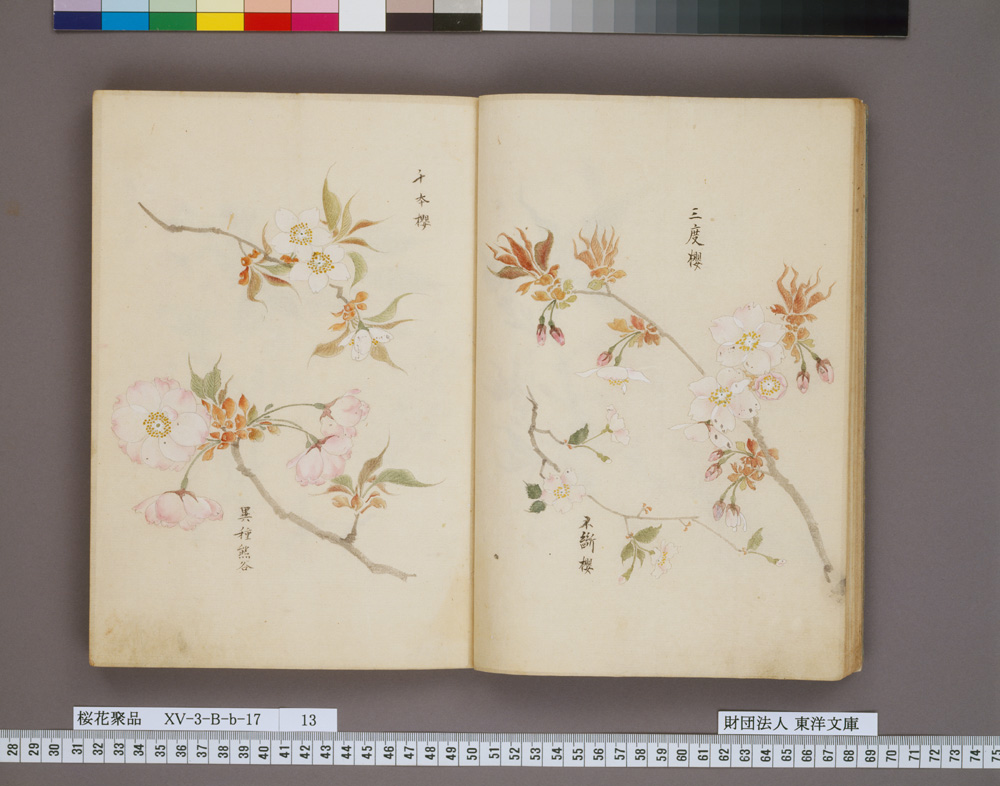 三度櫻
不斷櫻
千本櫻
異種熊谷
桜花聚品 XV-3-B-b-17 13
財団法人 東洋文庫
28 29 30 31 32 33 34 35 36 37 38 39 40 41 42 43 44 45 46 47 48 49 50 51 52 53 54 55 56 57 58 59 60 61 62 63 64 65 66 67 68 69 70 71 72 73 74 75